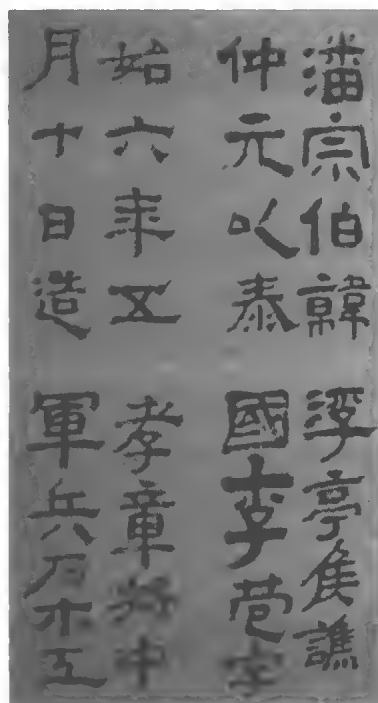 潘宗伯韓
仲元以泰
始六年五
月十日造
浮亭侯譙
國李苞字
孝章將中
軍兵石木工